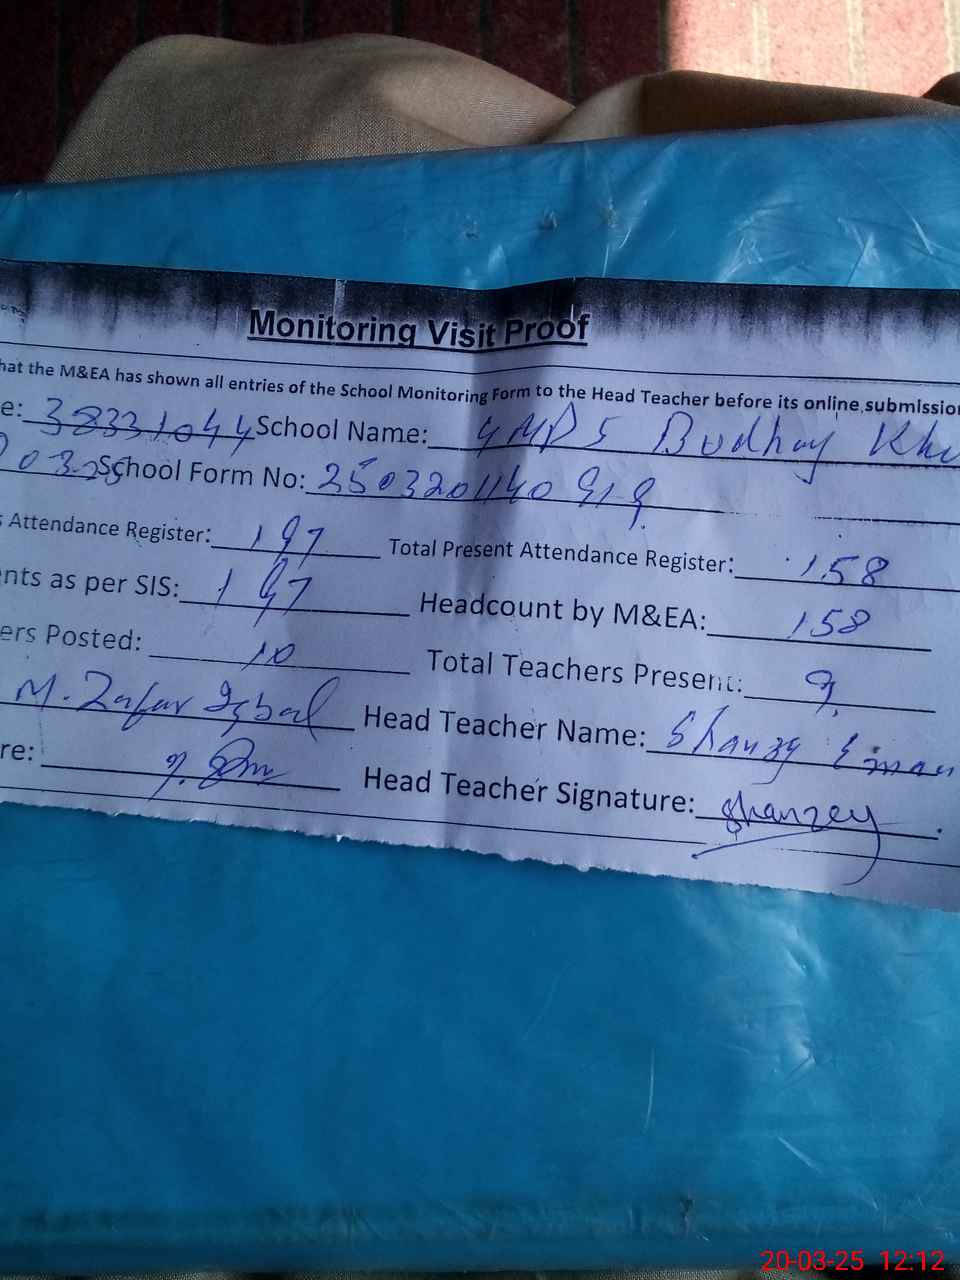 Monitoring Visit Proof
hat the M&EA has shown all entries of the School Monitoring Form to the Head Teacher before its online submission
e: 38331044 School Name: GMPS Budhay Kh
School Form No: 2503201140919
s Attendance Register: 197 Total Present Attendance Register: 158
ents as per SIS: 197 Headcount by M&EA: 158
ers Posted: 10 Total Teachers Present: 9
M. Zafar Iqbal Head Teacher Name: Shanzy Eman
re: Head Teacher Signature: Shanzey
20-03-25 12:12